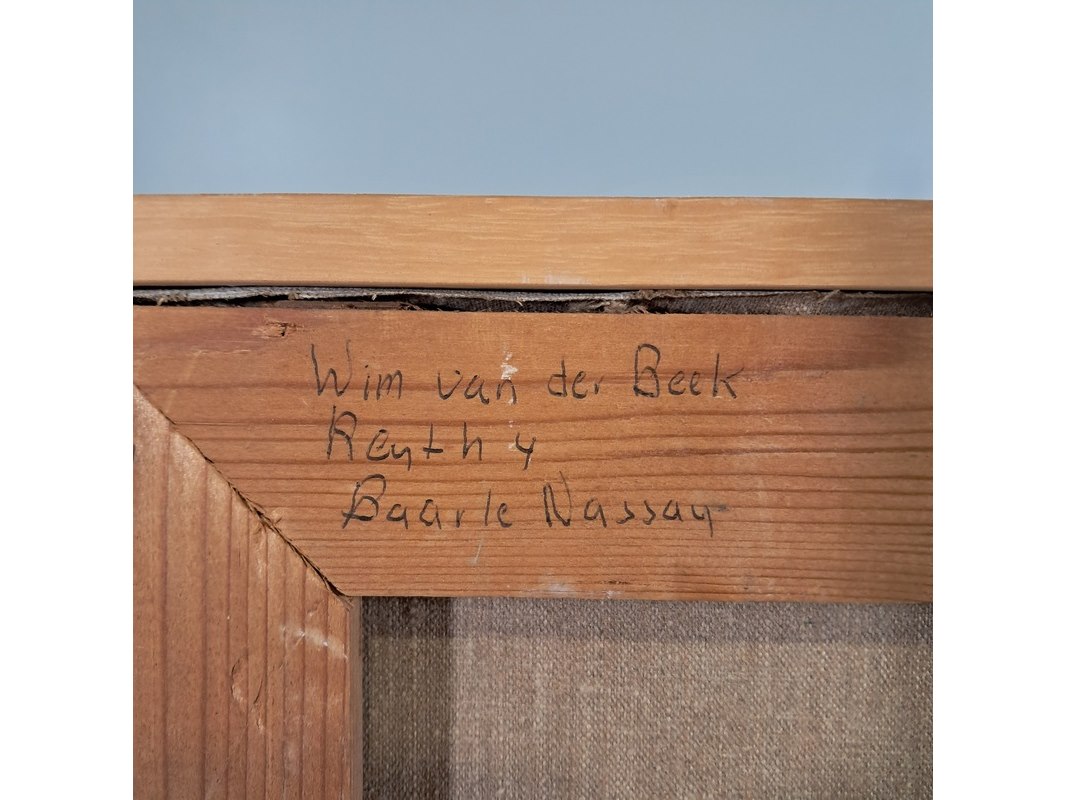 Wim van der Beek
Reyth 4
Baarle Nassau